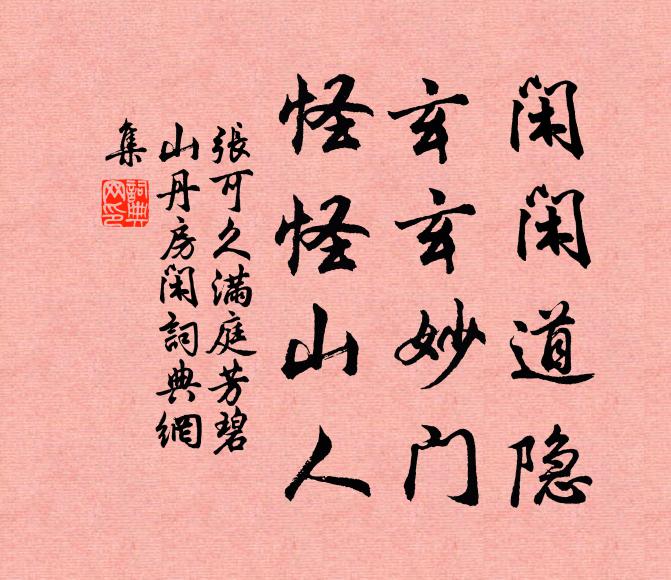 闲闲道隐
玄玄妙门
怪怪山人
張可久滿庭芳碧
山丹房閑詞典網
集
詞典网印